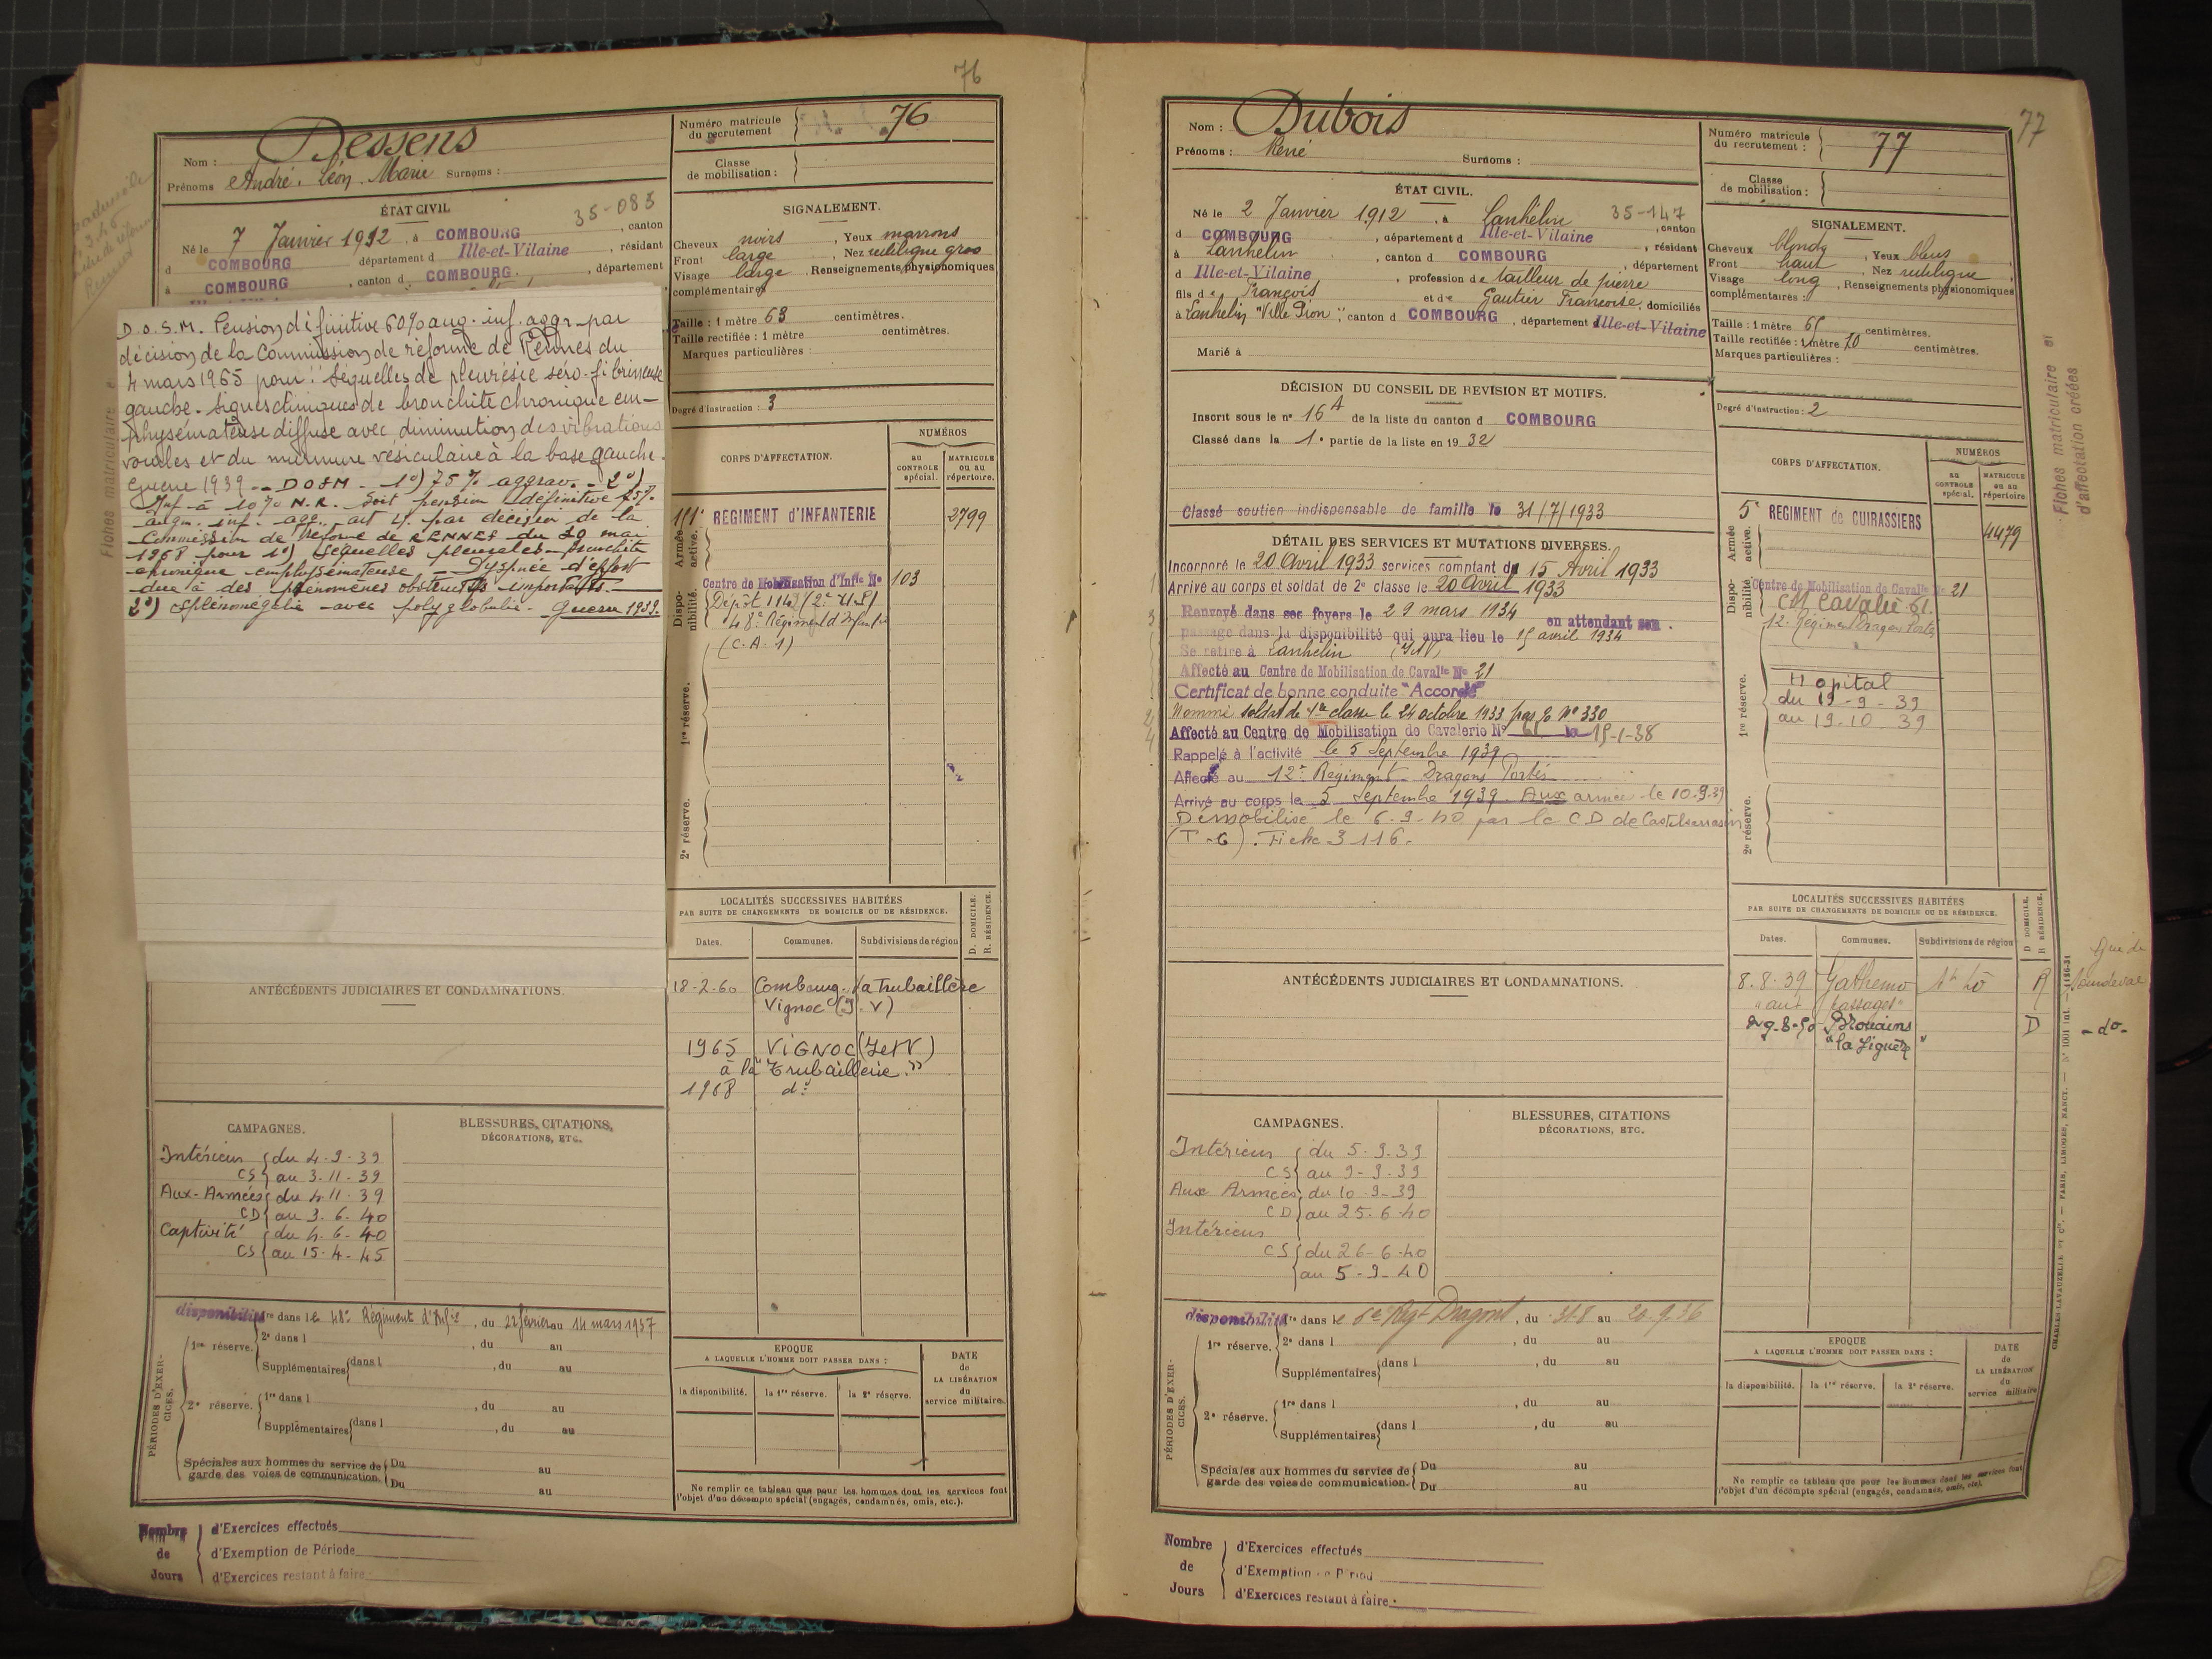 76
Nom : Dessens
Prénoms André, Léon, Marie Surnoms :
Numéro matricule du recrutement 76
Classe de mobilisation :
ÉTAT CIVIL
35-083
Né le 7 Janvier 1912, à COMBOURG, canton
d COMBOURG département d Ille-et-Vilaine, résidant
à COMBOURG, canton d COMBOURG, département
SIGNALEMENT.
Cheveux noirs, Yeux marrons
Front large, Nez rectiligne gros
Visage large, Renseignements physionomiques
complémentaires
Taille : 1 mètre 63 centimètres.
Taille rectifiée : 1 mètre centimètres.
Marques particulières :
Degré d'instruction : 3
D.O.S.M. Pension définitive 60% aug. inf. aggr. par
décision de la Commission de réforme de Rennes du
4 mars 1965 pour : Séquelles de pleurésie séro-fibrineuse
gauche. Signes cliniques de bronchite chronique em-
physémateuse diffuse avec diminution des vibrations
vocales et du murmure vésiculaire à la base gauche.
Guerre 1939 - DOSM - 1°) 75% aggrav. - 2°)
Inf à 10% N.R. Soit pension définitive 75%
augm. inf. agg. art 4. par décision de la
Commission de Réforme de RENNES du 20 mai
1968 pour 1°) Séquelles pleurales - bronchite
chronique emphysémateuse - Dyspnée d'effort
due à des phénomènes obstructifs importants.
2°) Splénomégalie avec polyglobulie. Guerre 1939.
Fiches matriculaire e
CORPS D'AFFECTATION.
NUMÉROS
AU CONTROLE spécial.
MATRICULE ou au répertoire.
Armée active.
REGIMENT d'INFANTERIE 2799
Disponibilité.
Centre de Mobilisation d'Infie No 103
Dépôt 114
48e Régiment d'Infanterie
(C.A. 1)
1re réserve.
2e réserve.
LOCALITÉS SUCCESSIVES HABITÉES
PAR SUITE DE CHANGEMENTS DE DOMICILE OU DE RÉSIDENCE.
D. DOMICILE.
R. RÉSIDENCE.
Dates. Communes. Subdivisions de région
18-2-60 Combourg. la Trubaillère
Vignoc (I.V)
1965 VIGNOC (I et V)
à la "Trubaillerie."
1968 d°
ANTÉCÉDENTS JUDICIAIRES ET CONDAMNATIONS.
CAMPAGNES.
BLESSURES, CITATIONS, DÉCORATIONS, ETC.
Intérieur du 4-9-39
CS au 3-11-39
Aux-Armées du 4-11-39
CD au 3-6-40
Captivité du 4-6-40
CS au 15-4-45
PÉRIODES D'EXERCICES.
disponibilité 1re dans le 48e Régiment d'Infie, du 22 février au 14 mars 1937
1re réserve. 2e dans l , du au
Supplémentaires dans l , du au
2e réserve. 1re dans l , du au
Supplémentaires dans l , du au
Spéciales aux hommes du service de garde des voies de communication. Du au
Du au
EPOQUE
A LAQUELLE L'HOMME DOIT PASSER DANS :
la disponibilité. la 1re réserve. la 2e réserve.
DATE de LA LIBÉRATION du service militaire.
Ne remplir ce tableau que pour les hommes dont les services font
l'objet d'un décompte spécial (engagés, condamnés, omis, etc.).
Nombre de Jours
d'Exercices effectués
d'Exemption de Période
d'Exercices restant à faire
77
Nom : Dubois
Prénoms : René Surnoms :
Numéro matricule du recrutement : 77
Classe de mobilisation :
ÉTAT CIVIL.
Né le 2 Janvier 1912, à Lanhélin 35-147, canton
d COMBOURG, département d Ille-et-Vilaine, résidant
à Lanhélin, canton d COMBOURG, département
d Ille-et-Vilaine, profession de tailleur de pierre
fils de François et de Gautier Françoise, domiciliés
à Lanhélin "Ville Pion", canton d COMBOURG, département d Ille-et-Vilaine
Marié à
SIGNALEMENT.
Cheveux blonds, Yeux bleus
Front haut, Nez rectiligne
Visage long, Renseignements physionomiques
complémentaires :
Taille : 1 mètre centimètres.
Taille rectifiée : 1 mètre 70 centimètres.
Marques particulières :
Degré d'instruction : 2
DÉCISION DU CONSEIL DE REVISION ET MOTIFS.
Inscrit sous le n° 16 A de la liste du canton d COMBOURG
Classé dans la 1e partie de la liste en 1932
Classé soutien indispensable de famille le 31/7/1933
DÉTAIL DES SERVICES ET MUTATIONS DIVERSES.
Incorporé le 20 Avril 1933 services comptant du 15 Avril 1933
Arrivé au corps et soldat de 2e classe le 20 avril 1933
Renvoyé dans ses foyers le 29 mars 1934 en attendant son
passage dans la disponibilité qui aura lieu le 15 avril 1934
Se retire à Lanhélin (I&V)
Affecté au Centre de Mobilisation de Cavalie No 21
Certificat de bonne conduite "Accordé"
Nommé soldat de 1re classe le 24 octobre 1933 N° 330
Affecté au Centre de Mobilisation de Cavalerie No 61 le 15-1-38
Rappelé à l'activité le 5 Septembre 1939
Affecté au 12e Régiment Dragons Portés
Arrivé au corps le 5 Septembre 1939. Aux armées le 10.9.39
Démobilisé le 6-9-40 par le C D de Castelsarrasin
(T-G). Fiche 3116.
CORPS D'AFFECTATION.
NUMÉROS
AU CONTROLE spécial.
MATRICULE ou au répertoire.
Armée active.
5e REGIMENT de CUIRASSIERS 4479
Disponibilité
Centre de Mobilisation de Cavalie No 21
CM Cavalie 61.
12e Régiment Dragons Portés
1re réserve.
Hopital
du 19-9-39
au 19-10-39
2e réserve.
Fiches matriculaire et d'affectation créées
LOCALITÉS SUCCESSIVES HABITÉES
PAR SUITE DE CHANGEMENTS DE DOMICILE OU DE RÉSIDENCE.
D DOMICILE.
R RÉSIDENCE.
Dates. Communes. Subdivisions de région
8.8.39 Gathemo St Lô R
"aux Passages"
29-8-50 Brouains D -d°-
"la Ligués"
ANTÉCÉDENTS JUDICIAIRES ET CONDAMNATIONS.
CAMPAGNES.
BLESSURES, CITATIONS DÉCORATIONS, ETC.
Intérieur du 5-9-39
CS au 9-9-39
Aux Armées du 10-9-39
CD au 25-6-40
Intérieur
CS du 26-6-40
au 5-9-40
PÉRIODES D'EXERCICES.
disponibilité 1re dans le 6e Rgt Dragons, du 31-8 au 20.9.36
1re réserve. 2e dans l , du au
Supplémentaires dans l , du au
2e réserve. 1re dans l , du au
Supplémentaires dans l , du au
Spéciales aux hommes du service de garde des voies de communication. Du au
Du au
EPOQUE
A LAQUELLE L'HOMME DOIT PASSER DANS :
la disponibilité. la 1re réserve. la 2e réserve.
DATE de LA LIBÉRATION du service militaire
Ne remplir ce tableau que pour les hommes dont les services font
l'objet d'un décompte spécial (engagés, condamnés, omis, etc).
CHARLES-LAVAUZELLE et Cie. — PARIS, LIMOGES, NANCY.
Nombre de Jours
d'Exercices effectués
d'Exemption de Périod
d'Exercices restant à faire